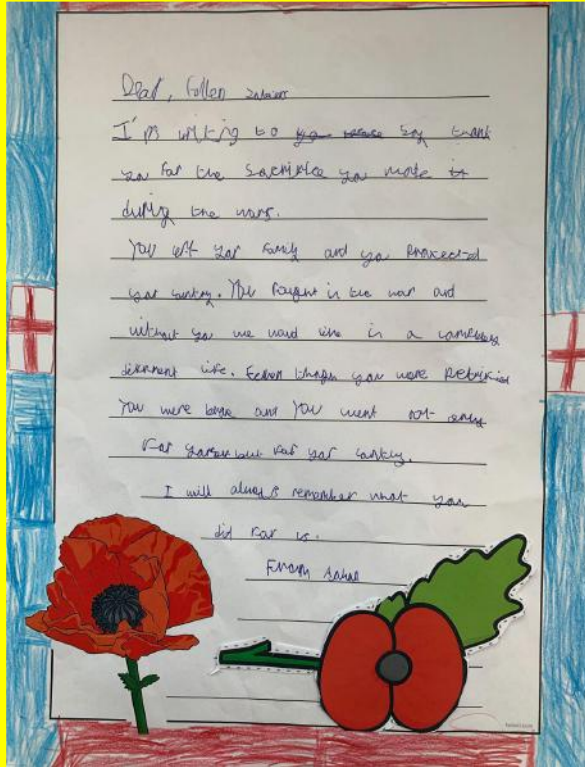 Dear, Fallen
I'm writing to say thank
you for the sacrifice you made
during the wars.
You left your family and you protected
your country. You fought in the war and
without you we would live in a
different life. you were
You were and you went not only
For but for your country.
I will always remember what you
did for us.
From